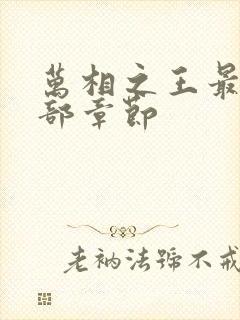 萬相之王最
部章節
老衲法號不戒